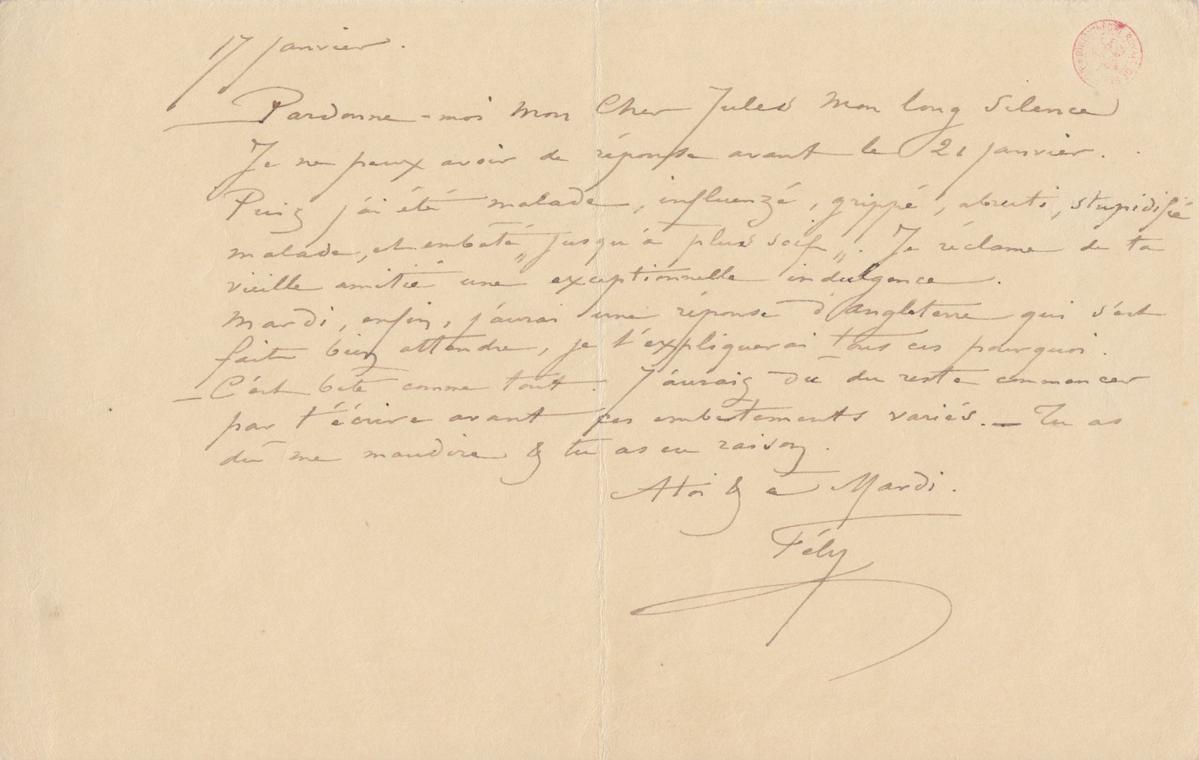 17 Janvier.
Pardonne-moi Mon Cher Jules Mon long Silence
Je ne peux avoir de réponse avant le 21 Janvier.
Puis j'ai été malade, influenzé, grippé, abruti, stupidifié
malade, et embêté "jusqu'à plus soif". Je réclame de ta
vieille amitié une exceptionnelle indulgence.
Mardi, enfin, j'aurai une réponse d'Angleterre qui s'est
fait bien attendre, je t'expliquerai tous ces pourquoi.
_ C'est bête comme tout. J'aurais dû du reste commencer
par t'écrire avant ces embêtements variés. _ Tu as
dû me maudire & tu as eu raison.
A toi & à Mardi.
Fély